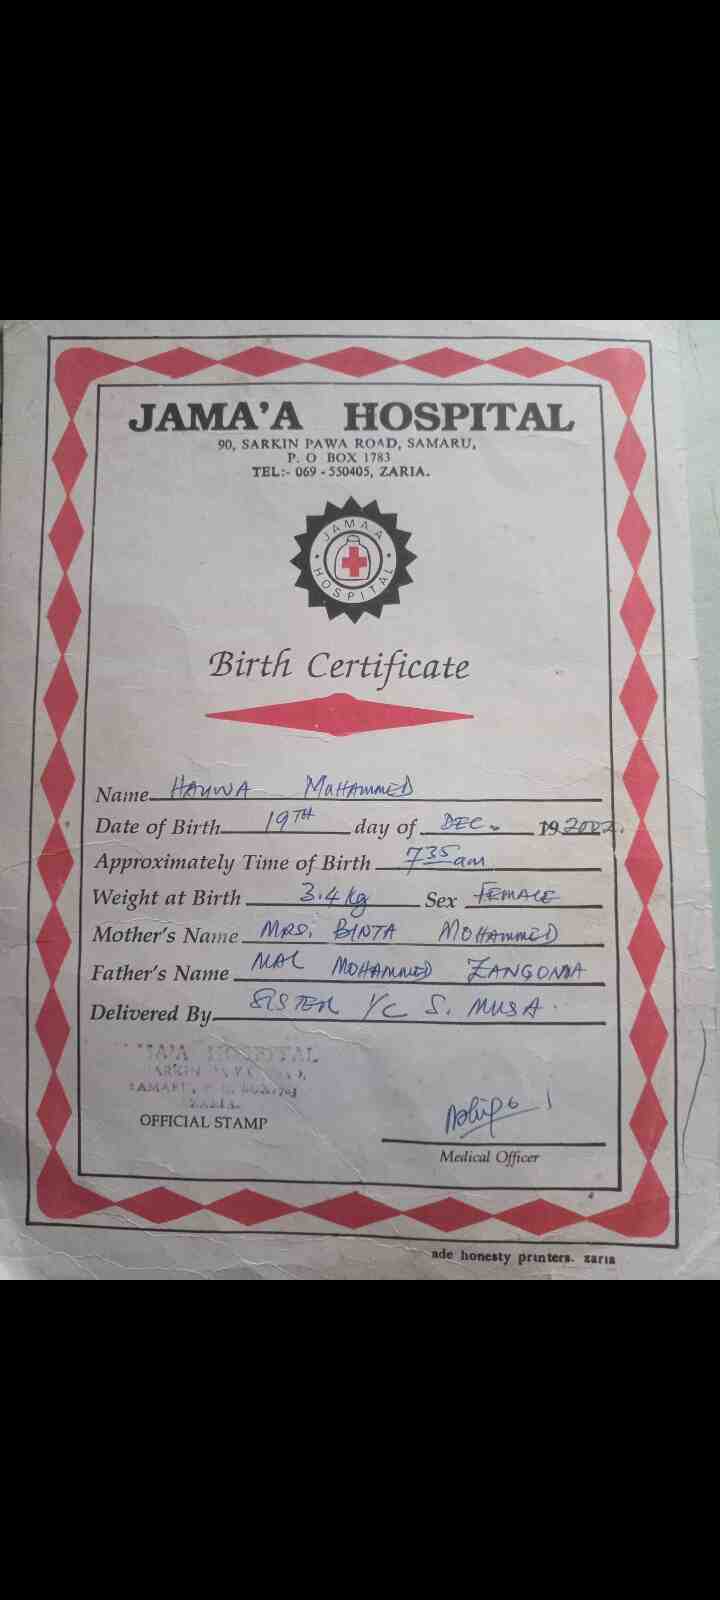 JAMA'A HOSPITAL
90, SARKIN PAWA ROAD, SAMARU,
P. O BOX 1783
TEL:- 069 - 550405, ZARIA.
JAMAA HOSPITAL
Birth Certificate
Name HAUWA MUHAMMED
Date of Birth 19TH day of DEC. 19 2002.
Approximately Time of Birth 735 am
Weight at Birth 3.4 kg Sex FEMALE
Mother's Name MRS. BINTA MOHAMMED
Father's Name MAL MOHAMMED
Delivered By SISTER I/C S. MUSA.
HOSPITAL
ZARIA.
OFFICIAL STAMP
Medical Officer
ade honesty printers. zaria